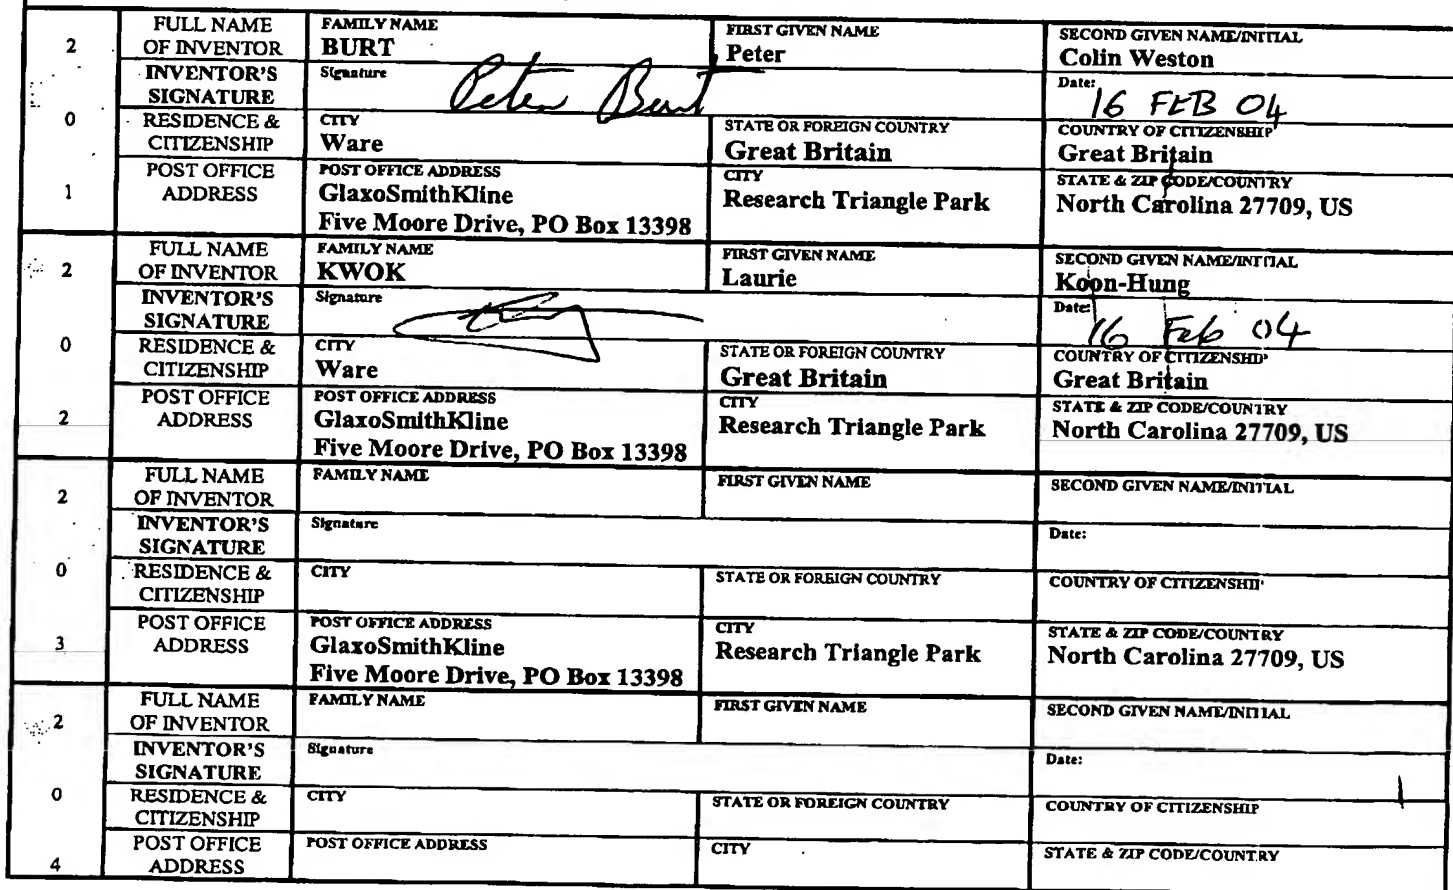 2 FULL NAME OF INVENTOR FAMILY NAME BURT FIRST GIVEN NAME Peter SECOND GIVEN NAME/INITIAL Colin Weston
INVENTOR'S SIGNATURE Signature Peter Burt Date: 16 FEB 04
0 RESIDENCE & CITIZENSHIP CITY Ware STATE OR FOREIGN COUNTRY Great Britain COUNTRY OF CITIZENSHIP Great Britain
1 POST OFFICE ADDRESS POST OFFICE ADDRESS GlaxoSmithKline Five Moore Drive, PO Box 13398 CITY Research Triangle Park STATE & ZIP CODE/COUNTRY North Carolina 27709, US
2 FULL NAME OF INVENTOR FAMILY NAME KWOK FIRST GIVEN NAME Laurie SECOND GIVEN NAME/INITIAL Koon-Hung
INVENTOR'S SIGNATURE Signature Date: 16 Feb 04
0 RESIDENCE & CITIZENSHIP CITY Ware STATE OR FOREIGN COUNTRY Great Britain COUNTRY OF CITIZENSHIP Great Britain
2 POST OFFICE ADDRESS POST OFFICE ADDRESS GlaxoSmithKline Five Moore Drive, PO Box 13398 CITY Research Triangle Park STATE & ZIP CODE/COUNTRY North Carolina 27709, US
2 FULL NAME OF INVENTOR FAMILY NAME FIRST GIVEN NAME SECOND GIVEN NAME/INITIAL
INVENTOR'S SIGNATURE Signature Date:
0 RESIDENCE & CITIZENSHIP CITY STATE OR FOREIGN COUNTRY COUNTRY OF CITIZENSHIP
3 POST OFFICE ADDRESS POST OFFICE ADDRESS GlaxoSmithKline Five Moore Drive, PO Box 13398 CITY Research Triangle Park STATE & ZIP CODE/COUNTRY North Carolina 27709, US
2 FULL NAME OF INVENTOR FAMILY NAME FIRST GIVEN NAME SECOND GIVEN NAME/INITIAL
INVENTOR'S SIGNATURE Signature Date:
0 RESIDENCE & CITIZENSHIP CITY STATE OR FOREIGN COUNTRY COUNTRY OF CITIZENSHIP
4 POST OFFICE ADDRESS POST OFFICE ADDRESS CITY STATE & ZIP CODE/COUNTRY